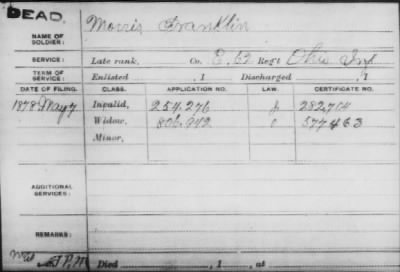 DEAD.
NAME OF SOLDIER: Morris Franklin
SERVICE: Late rank, Co. E, 62 Reg't Ohio Inf
TERM OF SERVICE: Enlisted , 1 Discharged , 1
DATE OF FILING. CLASS. APPLICATION NO. LAW. CERTIFICATE NO.
1878 May 7 Invalid, 254.276 282,704
Widow, 806.942 577463
Minor,
ADDITIONAL SERVICES:
REMARKS:
Died , 1 , at